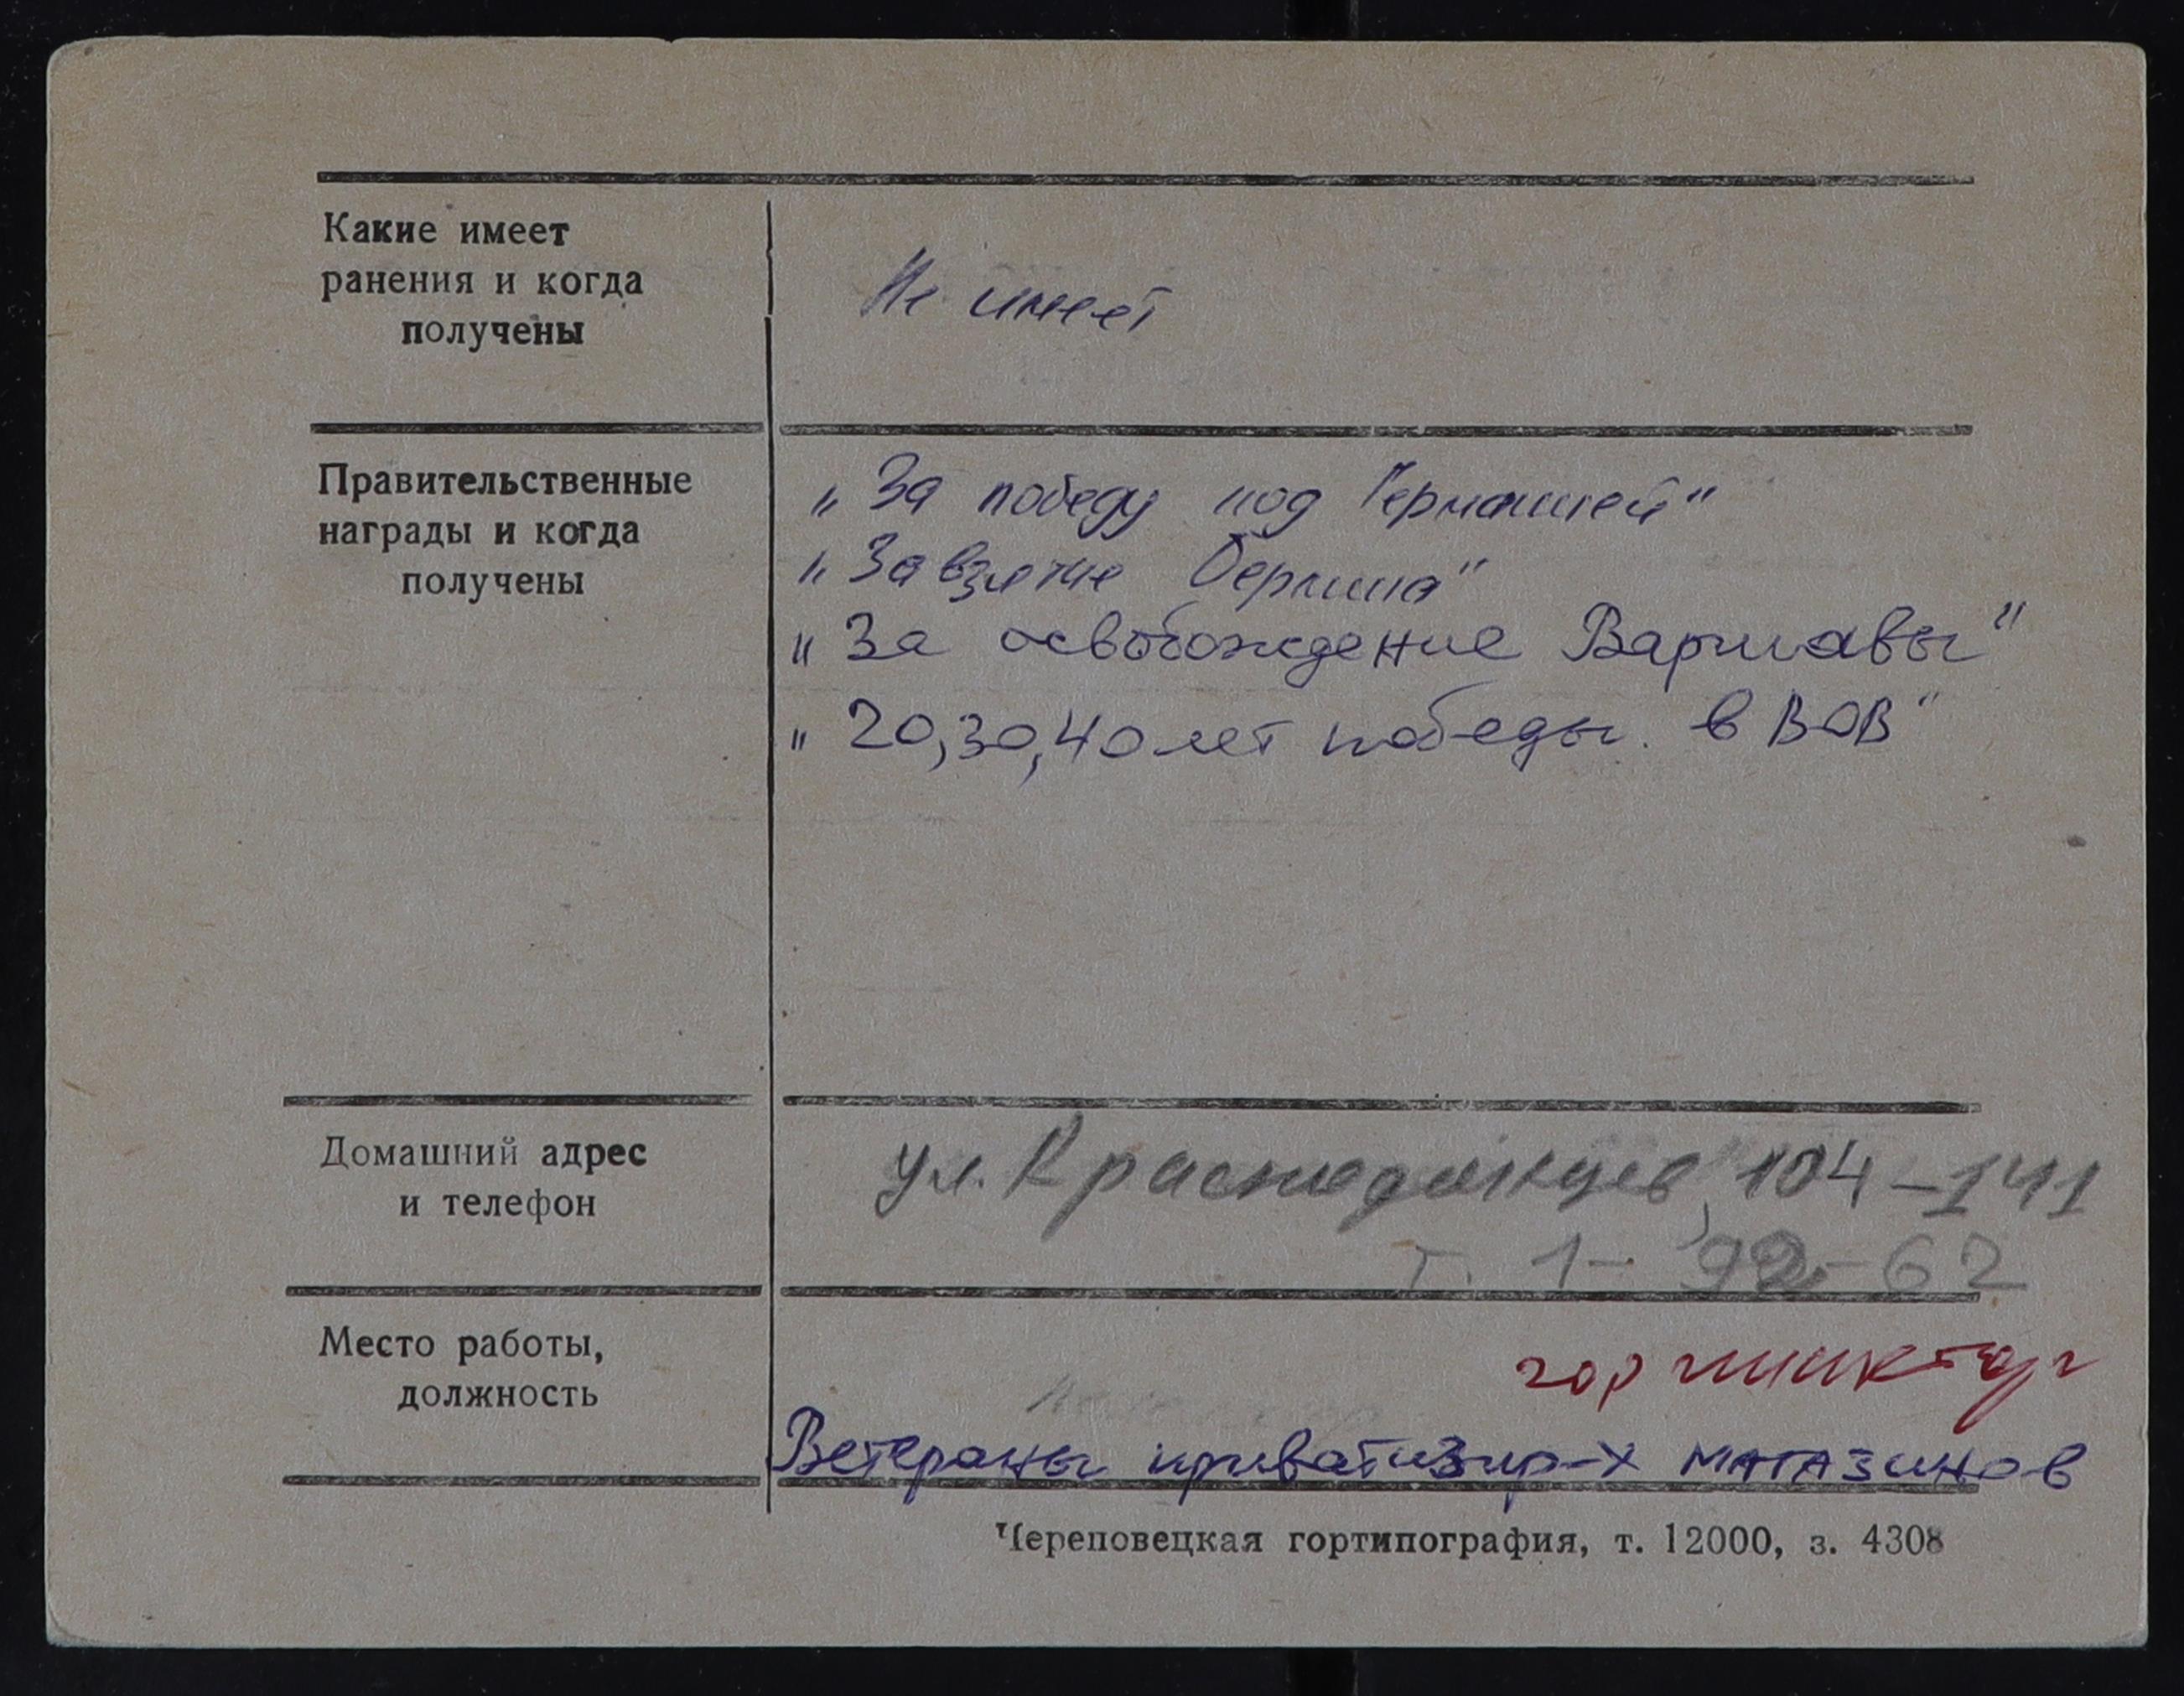 Какие имеет
ранения и когда
получены
Не имеет
Правительственные
награды и когда
получены
„За победу над Германией"
„За взятие Берлина"
„За освобождение Варшавы"
„20,30,40 лет победы в ВОВ"
Домашний адрес
и телефон
ул. Краснодонцев, 104-141
т. 1-92-62
Место работы,
должность
гор
Ветераны приватизир-х магазинов
Череповецкая гортипография, т. 12000, з. 4308